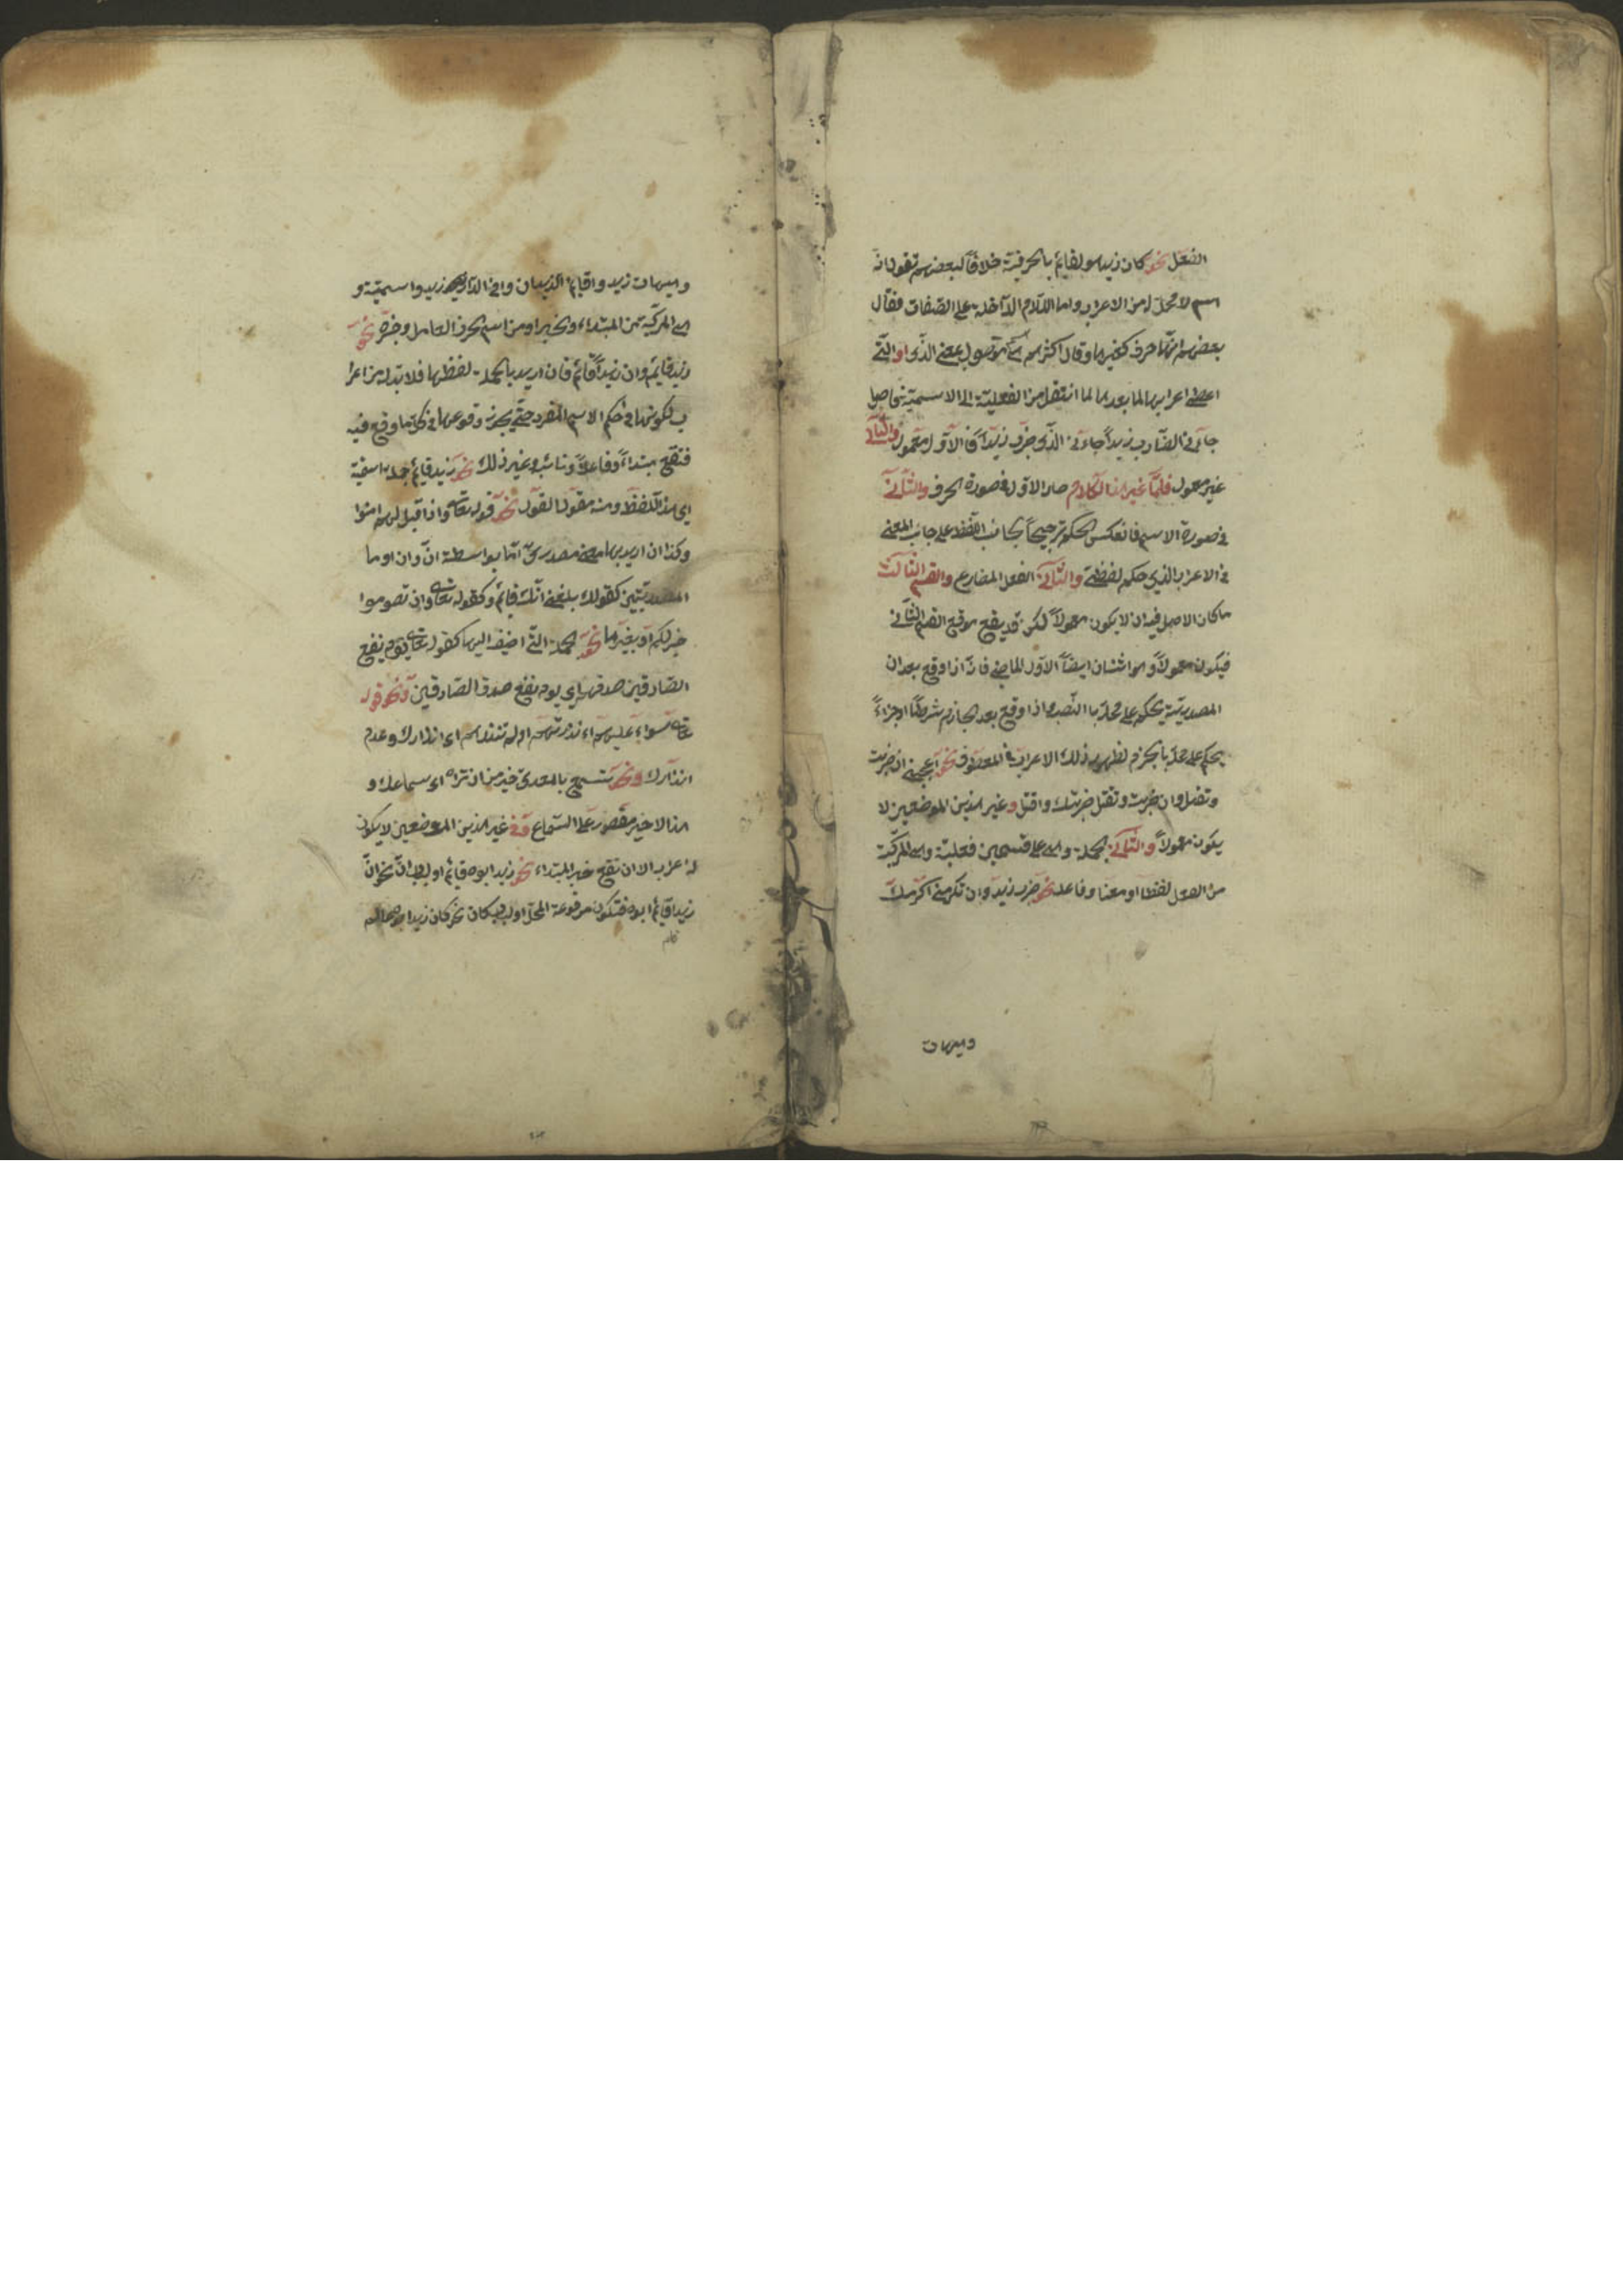 الفعل نحو كان زيد هو القائم بالحرفية خلافاً لبعضهم تقول انه
اسم لا محل له من الاعراب واما اللام الداخلة على الصفات فقال
بعضهم انها حرف كغيرها وقال اكثرهم هي اسم موصول بمعنى الذى او التى
اعطى اعرابها لما بعدها لما انتقل من الفعلية الى الاسمية فاصل
جاءنى الضارب زيداً جاءنى الذى ضرب زيداً فالاول معمول والثانى
غير معمول فلما غير هذا الكلام صار الاول فى صورة الحرف والثانى
فى صورة الاسم فانعكس الحكم ترجيحاً لجانب اللفظ على جانب المعنى
فى الاعراب الذى حكم لفظى والثانى الفعل المضارع والقسم الثالث
ما كان الاصل فيه ان لا يكون معمولاً لكن قد يقع موقع القسم الثانى
فيكون معمولاً وهو اثنان ايضاً الاول الماضى فانه اذا وقع بعد ان
المصدرية يحكم على محله بالنصب واذا وقع بعد الجازم شرطاً او جزاءً
يحكم على محله بالجزم لظهور ذلك الاعراب فى المعطوف نحو اعجبنى ان ضربت
وتقتل وان ضربت وتقتل ضربتك واقتل وغير هذين الموضعين لا
يكون معمولاً والثانى الجملة وهى على قسمين فعلية وهى المركبة
من الفعل لفظا او معنا وفاعله نحو ضرب زيد وان تكرمنى اكرمك
وهيهات
وهيهات زيد واقائم الزيدان وافى الدار زيد واسمية و
هى المركبة من المبتداء والخبر او من اسم الحرف العامل وخبره نحو
زيد قائم وان زيداً قائم فان اريد بالجملة لفظها فلا بد له من اعرا
ب لكونها فى حكم الاسم المفرد حتى يجوز وقوعها فى كل ما وقع فيه
فتقع مبتداءً وفاعلاً ونائبه وغير ذلك نحو زيد قائم جملة اسمية
اى هذا اللفظ ومنه مقول القول نحو قوله تعالى واذا قيل لهم امنوا
وكذا ان اريد بها معنى مصدرى اما بواسطة انّ وان او ما
المصدريتين كقولك بلغنى انك قائم وكقوله تعالى وان تصوموا
خير لكم او بغيرها نحو الجملة التى اضيف اليها كقوله تعالى يوم ينفع
الصادقين صدقهم اى يوم نفع صدق الصادقين ونحو قوله
تعالى سواء عليهم ءانذرتهم ام لم تنذرهم اى انذارك وعدم
انذارك ونحو تسمع بالمعدى خير من ان تراه اى سماعك و
هذا الاخير مقصور على السماع وفى غير هذين الموضعين لا يكون
له اعراب الا ان تقع خبر المبتداء نحو زيد ابوه قائم او لباب انّ نحو انّ
زيداً قائم ابوه فتكون مرفوعة المحل او لباب كان نحو كان زيد ابوه عالم